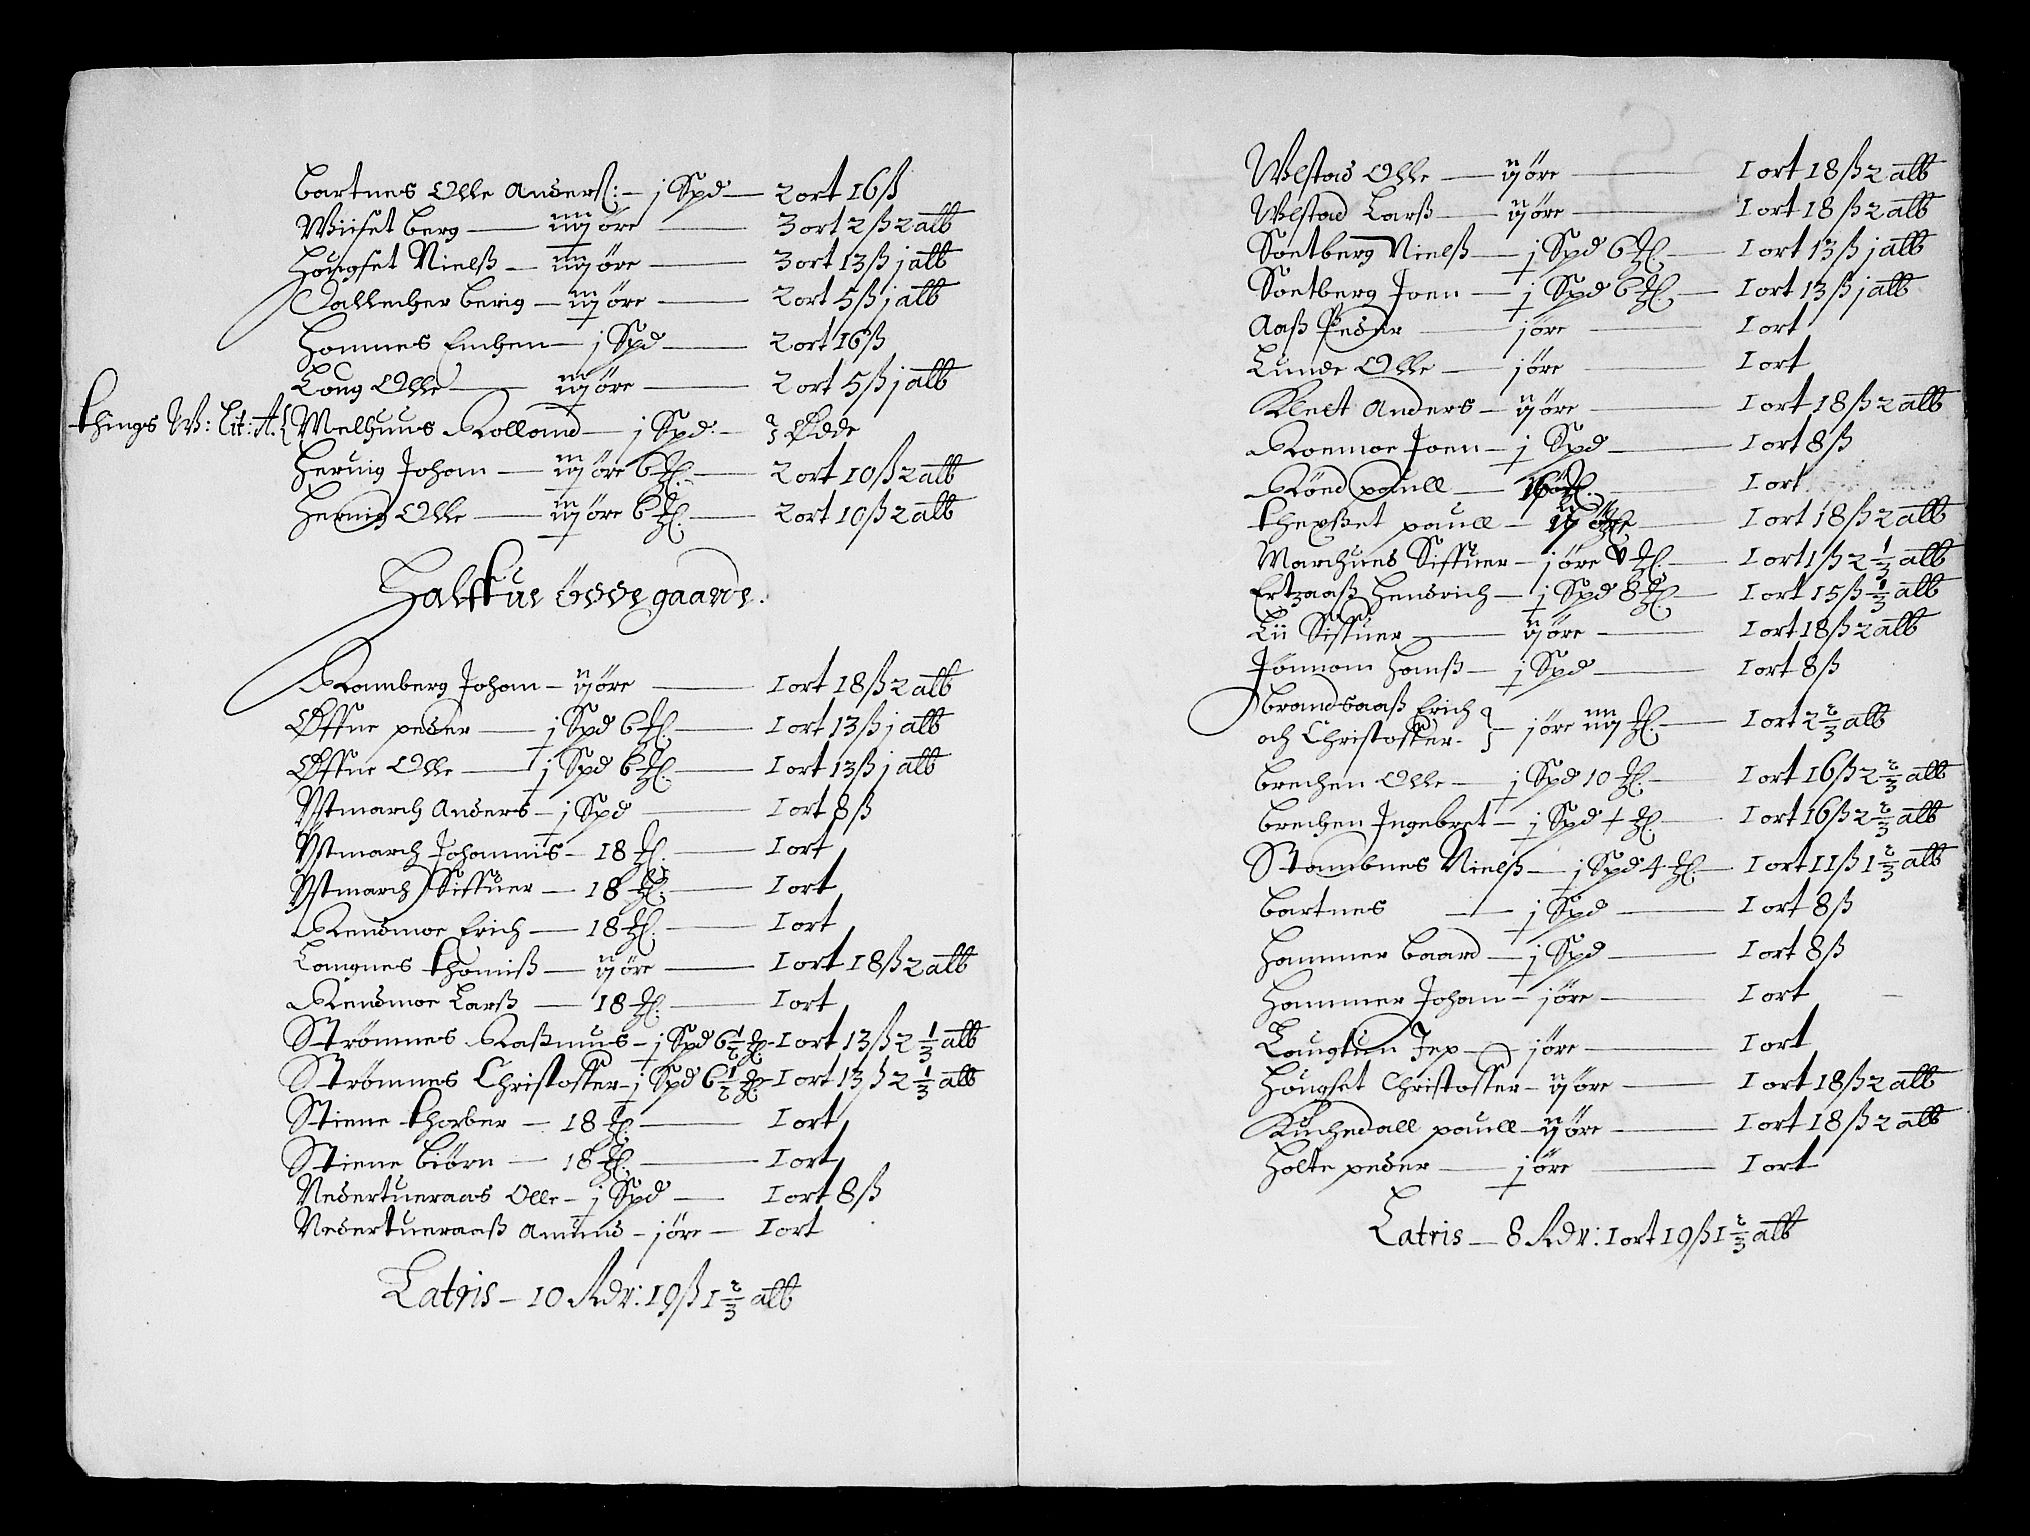 Bartnes Olle Anderß: – j Spd – 2 ort 16 ß
Wiiset Berg – iiij øre – 3 ort 2 ß 2 alb
Hougset Nielß – iiij øre – 3 ort 13 ß j alb
Dallecher Berig – iij øre – 2 ort 5 ß j alb
Hommes Enchen – j Spd – 2 ort 16 ß
Loug Olle – iij øre – 2 ort 5 ß j alb
Things W: Lit: A. { Melhuus Rolland – j Spd – } Øde
Heruig Johan – iij øre 6 ℔ – 2 ort 10 ß 2 alb
Heruig Olle – iij øre 6 ℔ – 2 ort 10 ß 2 alb
Halffue Ödegaarde.
Ramberg Johan – ij øre – 1 ort 18 ß 2 alb
Øffne peder – j Spd 6 ℔ – 1 ort 13 ß j alb
Øffne Olle – j Spd 6 ℔ – 1 ort 13 ß j alb
Ystmarch Anders – j Spd – 1 ort 8 ß
Ystmarch Johannis – 18 ℔ – 1 ort
Ystmarch Siffuer – 18 ℔ – 1 ort
Rensmoe Erich – 18 ℔ – 1 ort
Langnes Thomiß – ij øre – 1 ort 18 ß 2 alb
Rensmoe Larß – 18 ℔ – 1 ort
Strömnes Raßmus – j Spd 6 1/2 ℔ – 1 ort 13 ß 2 1/3 alb
Strömnes Christoffer – j Spd 6 1/2 ℔ – 1 ort 13 ß 2 1/3 alb
Stiene Thorber – 18 ℔ – 1 ort
Stiene Biörn – 18 ℔ – 1 ort
Nedertueraas Olle – j Spd – 1 ort 8 ß
Nedertueraaß Amund – j øre – 1 ort
Latris – 10 Rdr: 19 ß 1 2/3 alb
Wlstad Olle – ij øre – 1 ort 18 ß 2 alb
Wlstad Larß – ij øre – 1 ort 18 ß 2 alb
Soetberg Nielß – j Spd 6 ℔ – 1 ort 13 ß j alb
Soetberg Joen – j Spd 6 ℔ – 1 ort 13 ß j alb
Aaß Peder – j øre – 1 ort
Lunde Olle – j øre – 1 ort
Klect Anders – ij øre – 1 ort 18 ß 2 alb
Roemoe Joen – j Spd – 1 ort 8 ß
Röed paull – 16 ℔ – 1 ort
Thexßet paull – ij øre – 1 ort 18 ß 2 alb
Marchues Siffuer – j øre ℔ – 1 ort 1 ß 2 1/3 alb
Ertzaaß Hendrich – j Spd 8 ℔ – 1 ort 15 ß 1/3 alb
Lii Siffuer – ij øre – 1 ort 18 ß 2 alb
Jönnom Hanß – j Spd – 1 ort 8 ß
Brandsaaß Erich
och Christoffer } – j øre iiij ℔ – 1 ort 2 2/3 alb
Brechen Olle – j Spd 10 ℔ – 1 ort 16 ß 2 2/3 alb
Brechen Ingebret – j Spd ℔ – 1 ort 16 ß 2 2/3 alb
Stambnes Nielß – j Spd 4 ℔ – 1 ort 11 ß 1 2/3 alb
Bartnes – j Spd – 1 ort 8 ß
Hammer Baard – j Spd – 1 ort 8 ß
Hammer Johan – j øre – 1 ort
Laugtun Jep – j øre – 1 ort
Hougset Christoffer – ij øre – 1 ort 18 ß 2 alb
Kuchedall paull – ij øre – 1 ort 18 ß 2 alb
Holte peder – j øre – 1 ort
Latris – 8 Rdr: 1 ort 19 ß 1 2/3 alb